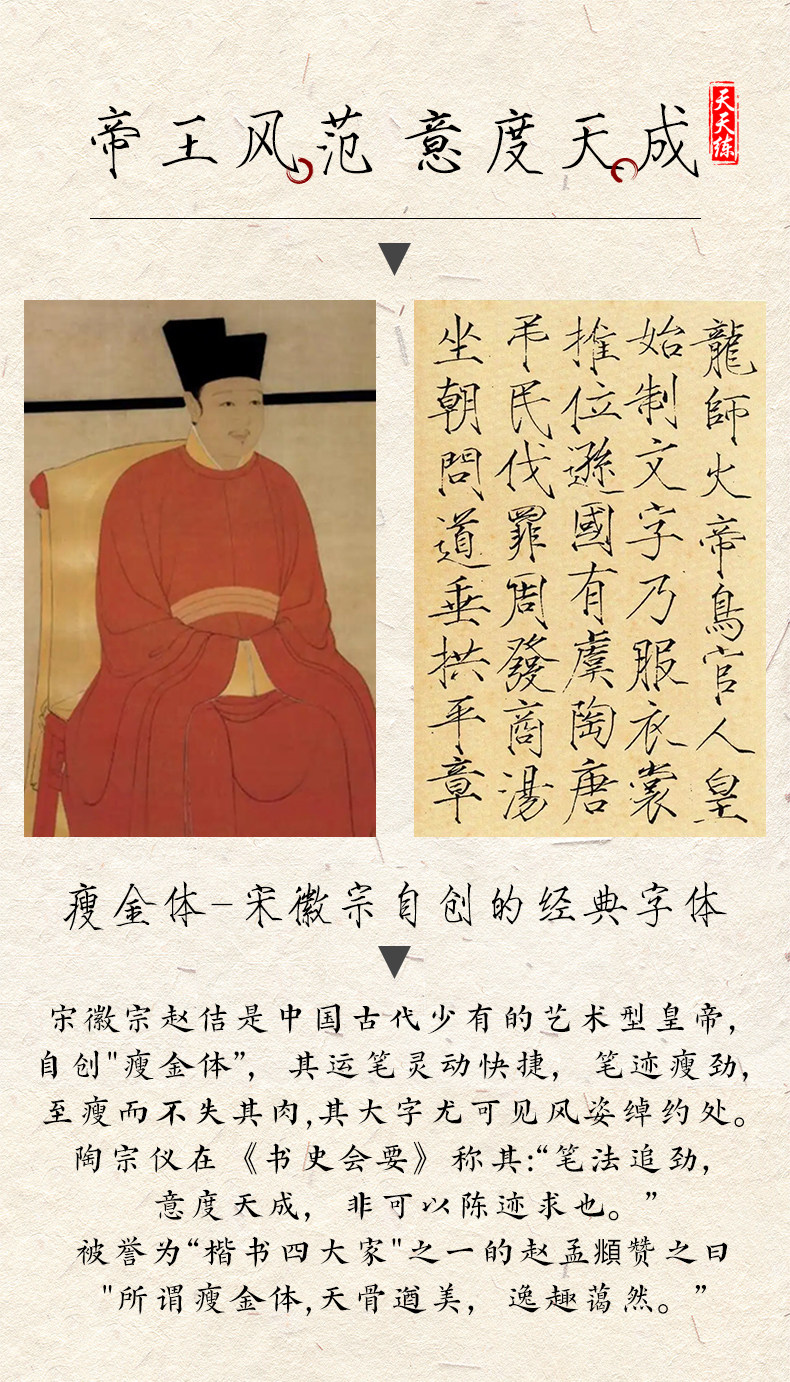 帝王风范 意度天成
天天练
龍師火帝鳥官人皇
始制文字乃服衣裳
推位遜國有虞陶唐
弔民伐罪周發商湯
坐朝問道垂拱平章
瘦金体-宋徽宗自创的经典字体
宋徽宗赵佶是中国古代少有的艺术型皇帝,
自创"瘦金体”, 其运笔灵动快捷, 笔迹瘦劲,
至瘦而不失其肉,其大字尤可见风姿绰约处。
陶宗仪在《书史会要》称其:“笔法追劲,
意度天成, 非可以陈迹求也。”
被誉为“楷书四大家"之一的赵孟頫赞之曰
"所谓瘦金体,天骨遒美, 逸趣蔼然。”